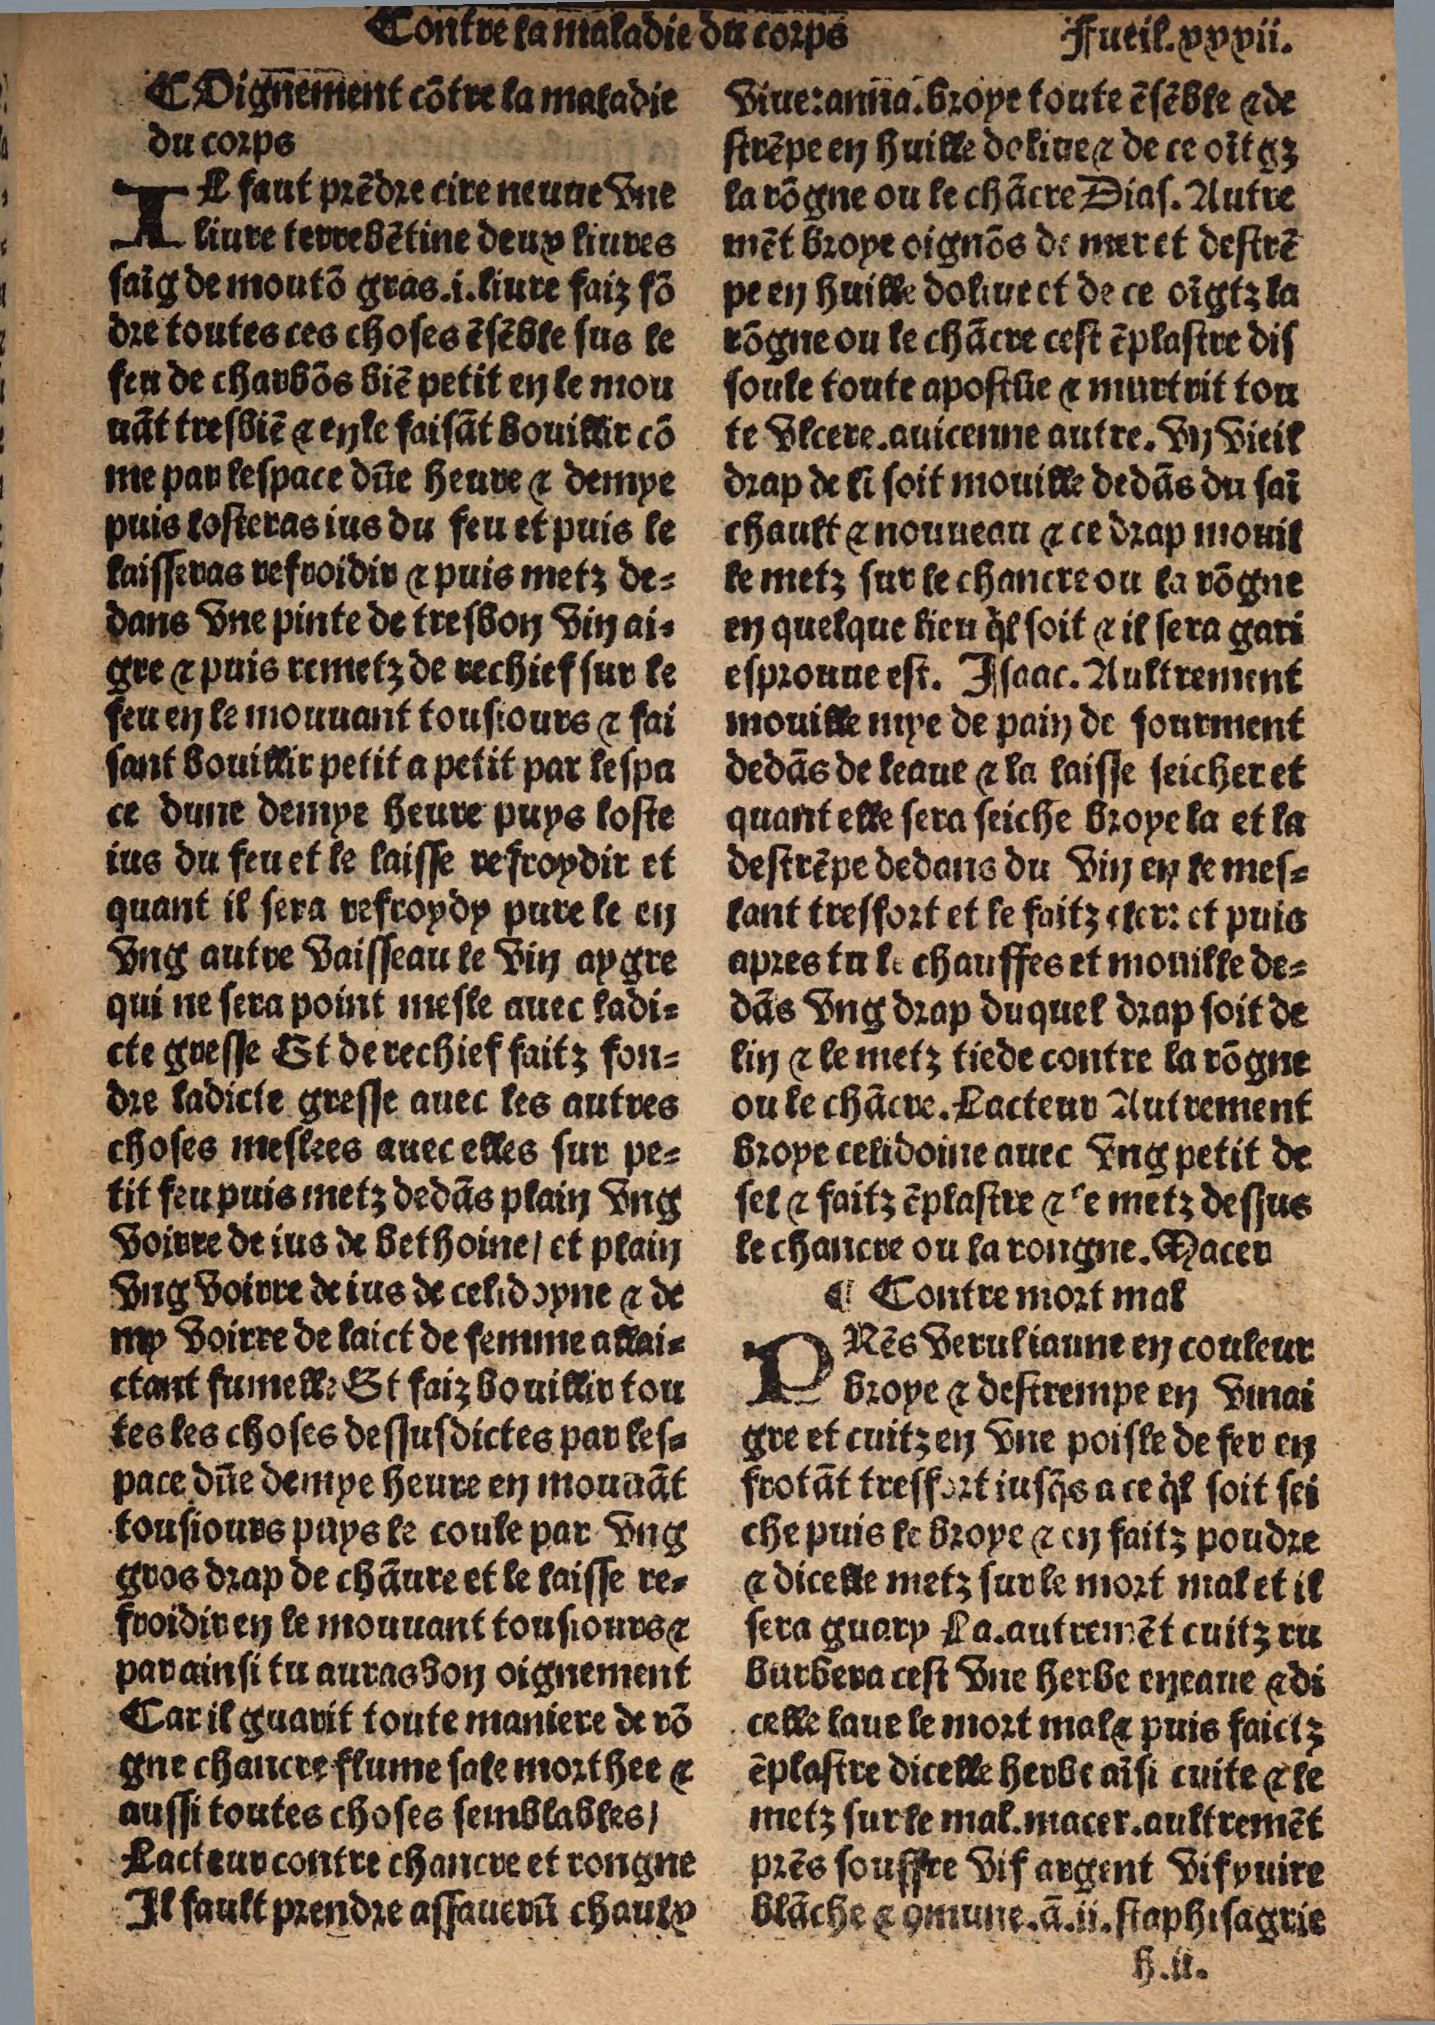 Contre la maladie du corps
Fueil.xxxvii.
¶ Oignement cōtre la maladie
du corps
IL faut prēdre cire neuue vne
liure terrebētine deux liures
saīg de moutō gras.i.liure faiz fō
dre toutes ces choses ēsēble sus le
feu de charbōs biē petit en le mou
uāt tresbiē & en le faisāt bouillir cō
me par lespace dūe heure & demye
puis losteras ius du feu et puis le
laisseras refroidir & puis metz de-
dans vne pinte de tresbon vin ai-
gre & puis remetz de rechief sur le
feu en le mouuant tousiours & fai
sant bouillir petit a petit par lespa
ce dune demye heure puys loste
ius du feu et le laisse refroydir et
quant il sera refroydy pure le en
vng autre vaisseau le vin aygre
qui ne sera point mesle auec ladi-
cte gresse Et de rechief faitz fon-
dre ladicte gresse auec les autres
choses meslees auec elles sur pe-
tit feu puis metz dedās plain vng
voirre de ius de bethoine/ et plain
vng voirre de ius de celidoyne & de
my voirre de laict de femme allai-
ctant fumelle Et faiz bouillir tou
tes les choses dessusdictes par les-
pace dūe demye heure en mouuāt
tousiours puys le coule par vng
gros drap de chāure et le laisse re-
froidir en le mouuant tousiours &
par ainsi tu auras bon oignement
Car il guarit toute maniere de rō
gne chancre flume sale mort hee &
aussi toutes choses semblables/
Lacteur contre chancre et rongne
Il fault prendre assauerū chaulx
viue:anna.broye toute ēsēble & de
strēpe en huille doliue & de ce oītgz
la rōgne ou le chācre Dias. Autre
mēt broye oignōs de mer et destrē
pe en huille doliue et de ce oīgtz la
rōgne ou le chācre cest ēplastre dis
soule toute apostūe & murtrit tou
te vlcere.auicenne autre. Vn vieil
drap de lī soit mouille dedās du saī
chault & nouueau & ce drap mouil
le metz sur le chancre ou la rōgne
en quelque lieu q̄l soit & il sera gari
esprouue est. Isaac. Aultrement
mouille mye de pain de fourment
dedās de leaue & la laisse seicher et
quant elle sera seiche broye la et la
destrēpe dedans du vin en le mes-
lant tresfort et le faitz cler: et puis
apres tu le chauffes et mouille de-
dās vng drap duquel drap soit de
lin & le metz tiede contre la rōgne
ou le chācre. Lacteur Autrement
broye celidoine auec vng petit de
sel & faitz ēplastre & le metz dessus
le chancre ou la rongne. Macer
¶ Contre mort mal
PRēs verul iaune en couleur
broye & destrempe en vinai
gre et cuitz en vne poisle de fer en
frotāt tresfort iusq̄s a ce q̄l soit sei
che puis le broye & en faitz poudre
& dicelle metz sur le mort mal et il
sera guary La.autremēt cuitz ru
burbera cest vne herbe en eaue & di
celle laue le mort mal & puis faictz
ēplastre dicelle herbe aīsi cuite & le
metz sur le mal.macer.aultremēt
prēs souffre vif argent vif yuire
blāche & 9mune.ā.ii.staphisagrie
h.ii.